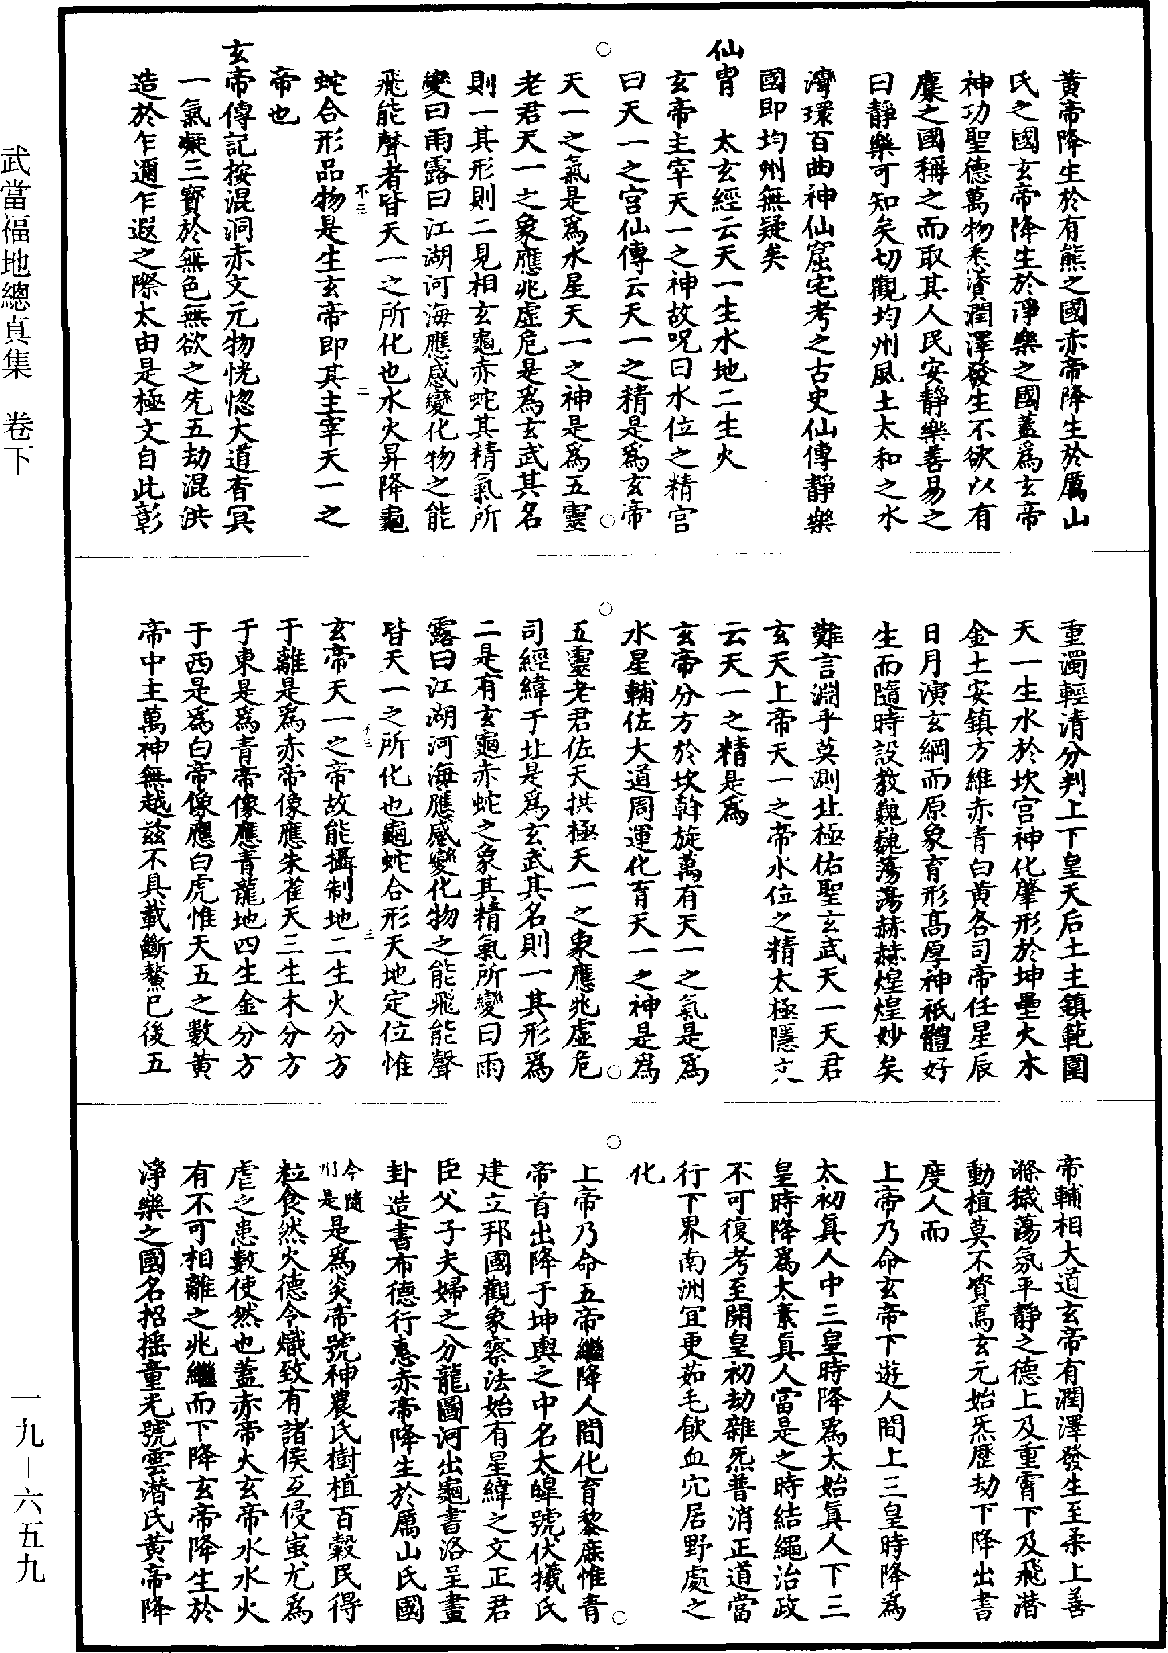 武當福地總真集　卷下
黃帝降生於有熊之國赤帝降生於厲山
氏之國玄帝降生於淨樂之國蓋為玄帝
神功聖德萬物悉資潤澤發生不欲以有
麋之國稱之而取其人民安靜樂善易之
曰靜樂可知矣切觀均州風土太和之水
灣環百曲神仙窟宅考之古史仙傳靜樂
國即均州無疑矣
仙胄　太玄經云天一生水地二生火
玄帝主宰天一之神故呪曰水位之精宮
曰天一之宮仙傳云天一之精是為玄帝
天一之氣是為水星天一之神是為五靈
老君天一之象應兆虛危是為玄武其名
則一其形則二見相玄龜赤蛇其精氣所
變曰雨露曰江湖河海應感變化物之能
飛能聲者皆天一之所化也水火昇降龜
蛇合形品物是生玄帝即其主宰天一之
帝也
玄帝傳記按混洞赤文元物恍惚大道杳冥
一氣凝三寶於無色無欲之先五劫混洪
造於乍邇乍遐之際太由是極文自此彰
重濁輕清分判上下皇天后土主鎮範圍
天一生水於坎宮神化肇形於坤壘火木
金土安鎮方維赤青白黃各司帝任星辰
日月演玄綱而原象育形高厚神祇體好
生而隨時設教巍巍蕩蕩赫赫煌煌妙矣
難言淵乎莫測北極佑聖玄武天一天君
玄天上帝天一之帝水位之精太極隱文
云天一之精是為
玄帝分方於坎斡旋萬有天一之氣是為
水星輔佐大道周運化育天一之神是為
五靈老君佐天拱極天一之象應兆虛危
司經緯于北是為玄武其名則一其形為
二是有玄龜赤蛇之象其精氣所變曰雨
露曰江湖河海應感變化物之能飛能聲
皆天一之所化也龜蛇合形天地定位惟
玄帝天一之帝故能攝制地二生火分方
于離是為赤帝像應朱雀天三生木分方
于東是為青帝像應青龍地四生金分方
于西是為白帝像應白虎惟天五之數黃
帝中主萬神無越茲不具載斷鰲已後五
帝輔相大道玄帝有潤澤發生至柔上善
滌穢蕩氛平靜之德上及重霄下及飛潛
動植莫不資焉玄元始炁歷劫下降出書
度人而
上帝乃命玄帝下遊人間上三皇時降為
太初真人中三皇時降為太始真人下三
皇時降為太素真人當是之時結繩治政
不可復考至開皇初劫雜炁普消正道當
行下界南洲冝更茹毛飲血穴居野處之
化
上帝乃命五帝繼降人間化育黎庶惟青
帝首出降于坤輿之中名太皥號伏犧氏
建立邦國觀象察法始有星緯之文正君
臣父子夫婦之分龍圖河出龜書洛呈畫
卦造書布德行惠赤帝降生於厲山氏國
今隨州是是為炎帝號神農氏樹植百穀民得
粒食然火德令熾致有諸侯互侵蚩尤為
虐之患數使然也蓋赤帝火玄帝水水火
有不可相離之兆繼而下降玄帝降生於
淨樂之國名招搖童光號雲潛氏黃帝降
一九－六五九